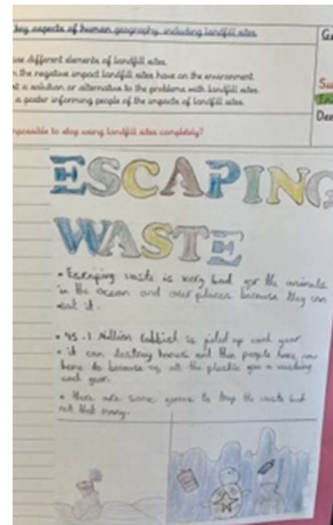 key aspects of human geography including landfill sites.
use different elements of landfill sites.
the negative impact landfill sites have on the environment.
a solution or alternative to the problems with landfill sites.
a poster informing people of the impacts of landfill sites.
impossible to stop using landfill sites completely?
ESCAPING
WASTE
• Escaping waste is very bad for the animals
in the ocean and over places because they can
eat it.
• 45.1 Million rubbish is piled up each year
• it can destroy homes and then people have no
home to because of all the plastic you a
each year.
• there are some to trap the waste but
not that many.